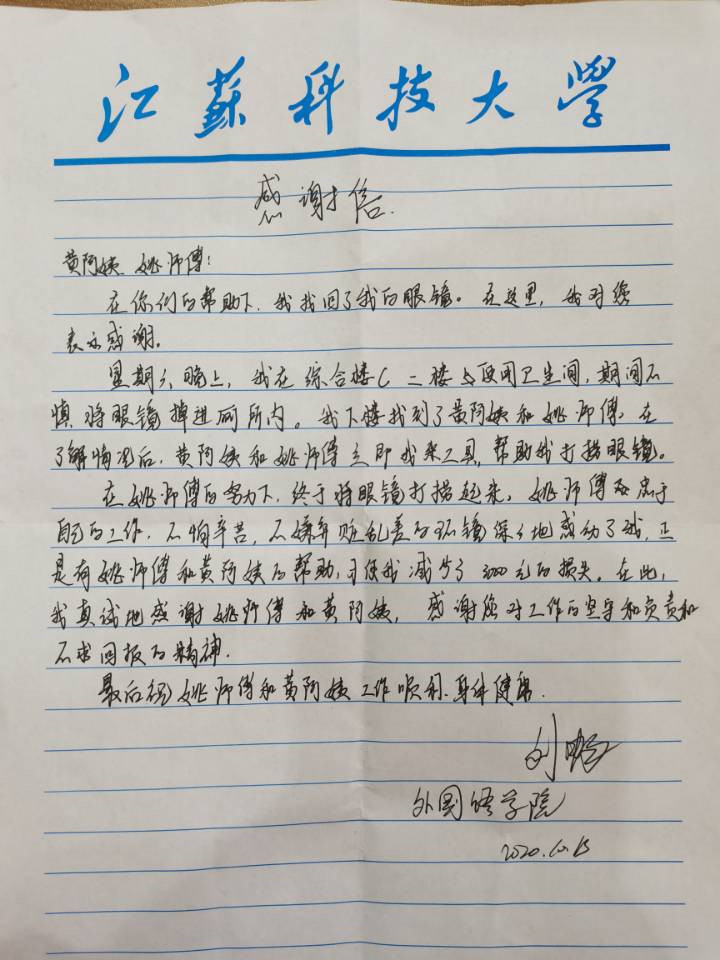 江蘇科技大學
感谢信.
黄阿姨 姚师傅：
在你们的帮助下，我找回了我的眼镜。在这里，我对您
表示感谢。
星期六晚上，我在综合楼C 二楼与段用卫生间，期间不
慎将眼镜掉进厕所内。我下楼找到了黄阿姨和姚师傅，在
了解情况后，黄阿姨和姚师傅立即找来工具，帮助我打捞眼镜。
在姚师傅的努力下，终于将眼镜打捞起来，姚师傅忠于
自己的工作，不怕辛苦，不嫌弃脏乱差的环镜深々地感动了我，正
是有姚师傅和黄阿姨的帮助，才使我减少了3000元的损失。在此，
我真诚地感谢姚师傅和黄阿姨，感谢您对工作的坚守和负责和
不求回报的精神.
最后祝姚师傅和黄阿姨工作顺利.身体健康.
刘
外国语学院
2020.10.15